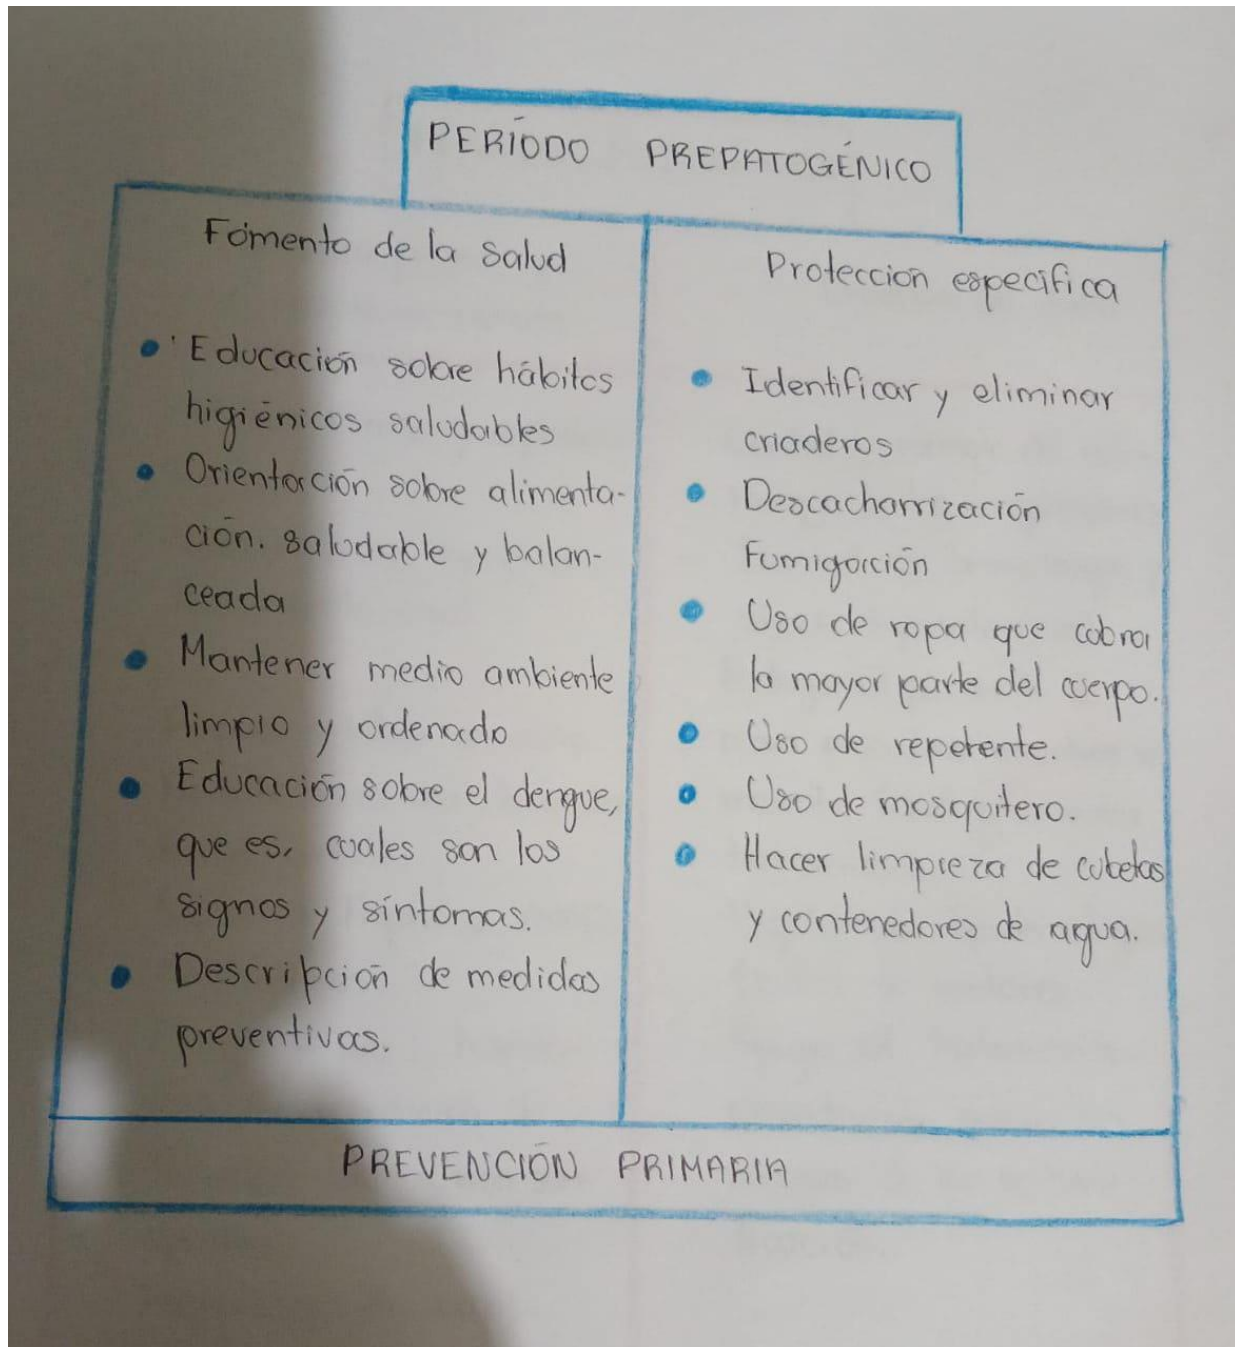 PERÍODO PREPATOGÉNICO
Fomento de la Salud
• Educación sobre hábitos
higiénicos saludables
• Orientación sobre alimenta-
ción. saludable y balan-
ceada
• Mantener medio ambiente
limpio y ordenado
• Educación sobre el dengue,
que es, cuales son los
signos y síntomas.
• Descripción de medidas
preventivas.
Proteccion especifica
• Identificar y eliminar
criaderos
• Descacharrización
Fumigación
• Uso de ropa que cobra
la mayor parte del cuerpo.
• Uso de repetente.
• Uso de mosquitero.
• Hacer limpieza de cubetas
y contenedores de agua.
PREVENCIÓN PRIMARIA